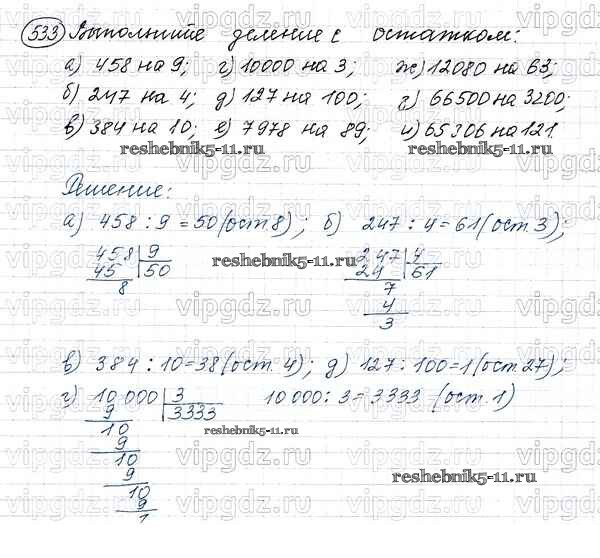 533 Выполните деление с остатком:
а) 458 на 9; г) 10000 на 3; ж) 12080 на 63;
б) 247 на 4; д) 127 на 100; г) 66500 на 3200;
в) 384 на 10; е) 7978 на 89; и) 65306 на 121
reshebnik5-11.ru reshebnik5-11.ru
Решение:
а) 458 : 9 = 50 (ост 8); б) 247 : 4 = 61 (ост. 3);
458 9 247 4
45 50 24 61
8 7
reshebnik5-11.ru
4
3
в) 384 : 10 = 38 (ост. 4); д) 127 : 100 = 1 (ост. 27);
г) 10 000 3 10 000 : 3 = 3333 (ост. 1)
9 3333
10 reshebnik5-11.ru
9
10
9
10 reshebnik5-11.ru
9
1
vipgdz.ru